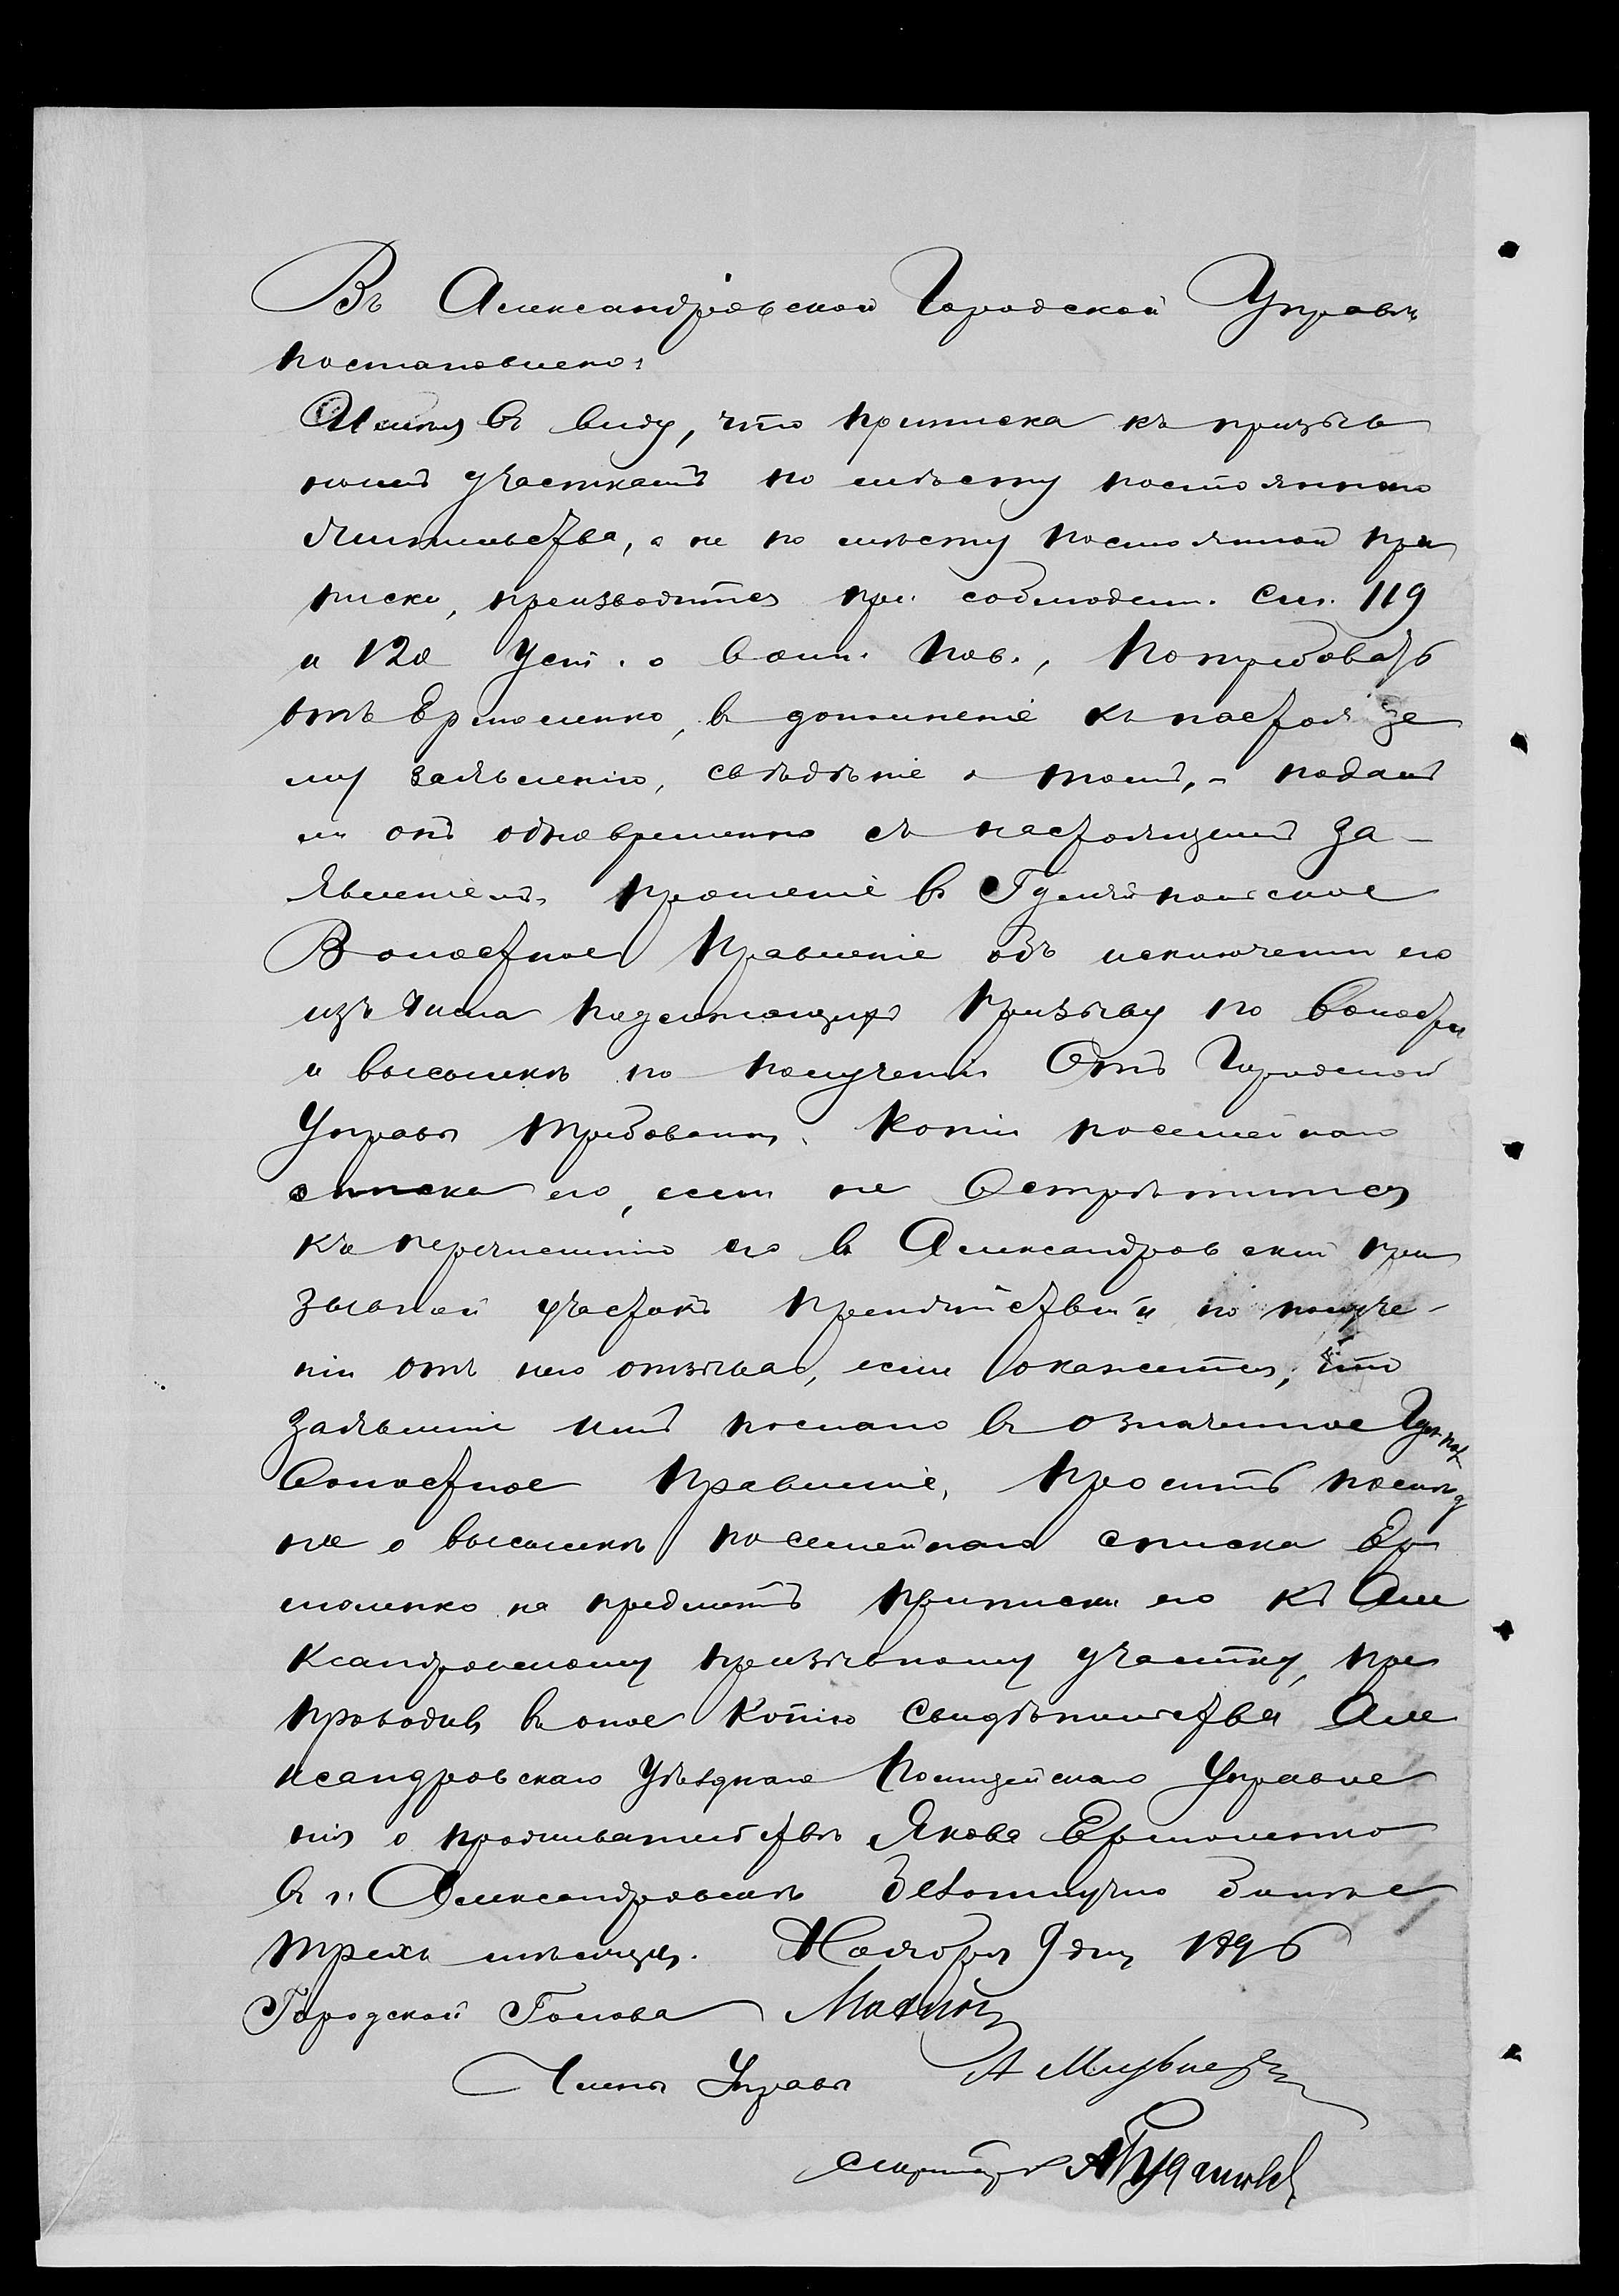 Въ Александровской Городской Управѣ
постановлено:
Имѣя въ виду, что приписка къ призыв
нымъ участкамъ по мѣсту постояннаго
жительства, а не по мѣсту постоянной при
писки, производится при соблюден. ст. 119
и 120 Уст. о воин. пов., потребовать
отъ Ермоленко, въ дополненіе къ настояще
му заявленію, свѣдѣніе о томъ, подалъ
ли онъ одновременно съ настоящимъ за-
явленіемъ прошеніе въ Гуляйпольское
Волостное Правленіе объ исключеніи его
изъ числа подлежащихъ призыву по волости
и высылкѣ по полученіи отъ Городской
Управы требованія, копіи посемейнаго
списка его, если не встрѣтится
къ перечисленію его въ Александровскій при
зывной участокъ препятствій и по получе-
ніи отъ него отзыва, если окажется, что
заявленіе имъ послано въ означенное
Волостное Правленіе, просить послѣд
нее о высылкѣ посемейнаго списка Ер
моленко на предметъ приписки его къ Але
ксандровскому призывному участку, пре
проводивъ въ оное копію свидѣтельства Але
ксандровскаго Уѣзднаго Полицейскаго Управле
нія о проживательствѣ Якова Ермоленко
въ г. Александровскѣ безотлучно болѣе
трехъ мѣсяцевъ. Ноября 9 дня 1896
Городской Голова
Члены Управы
Секретарь